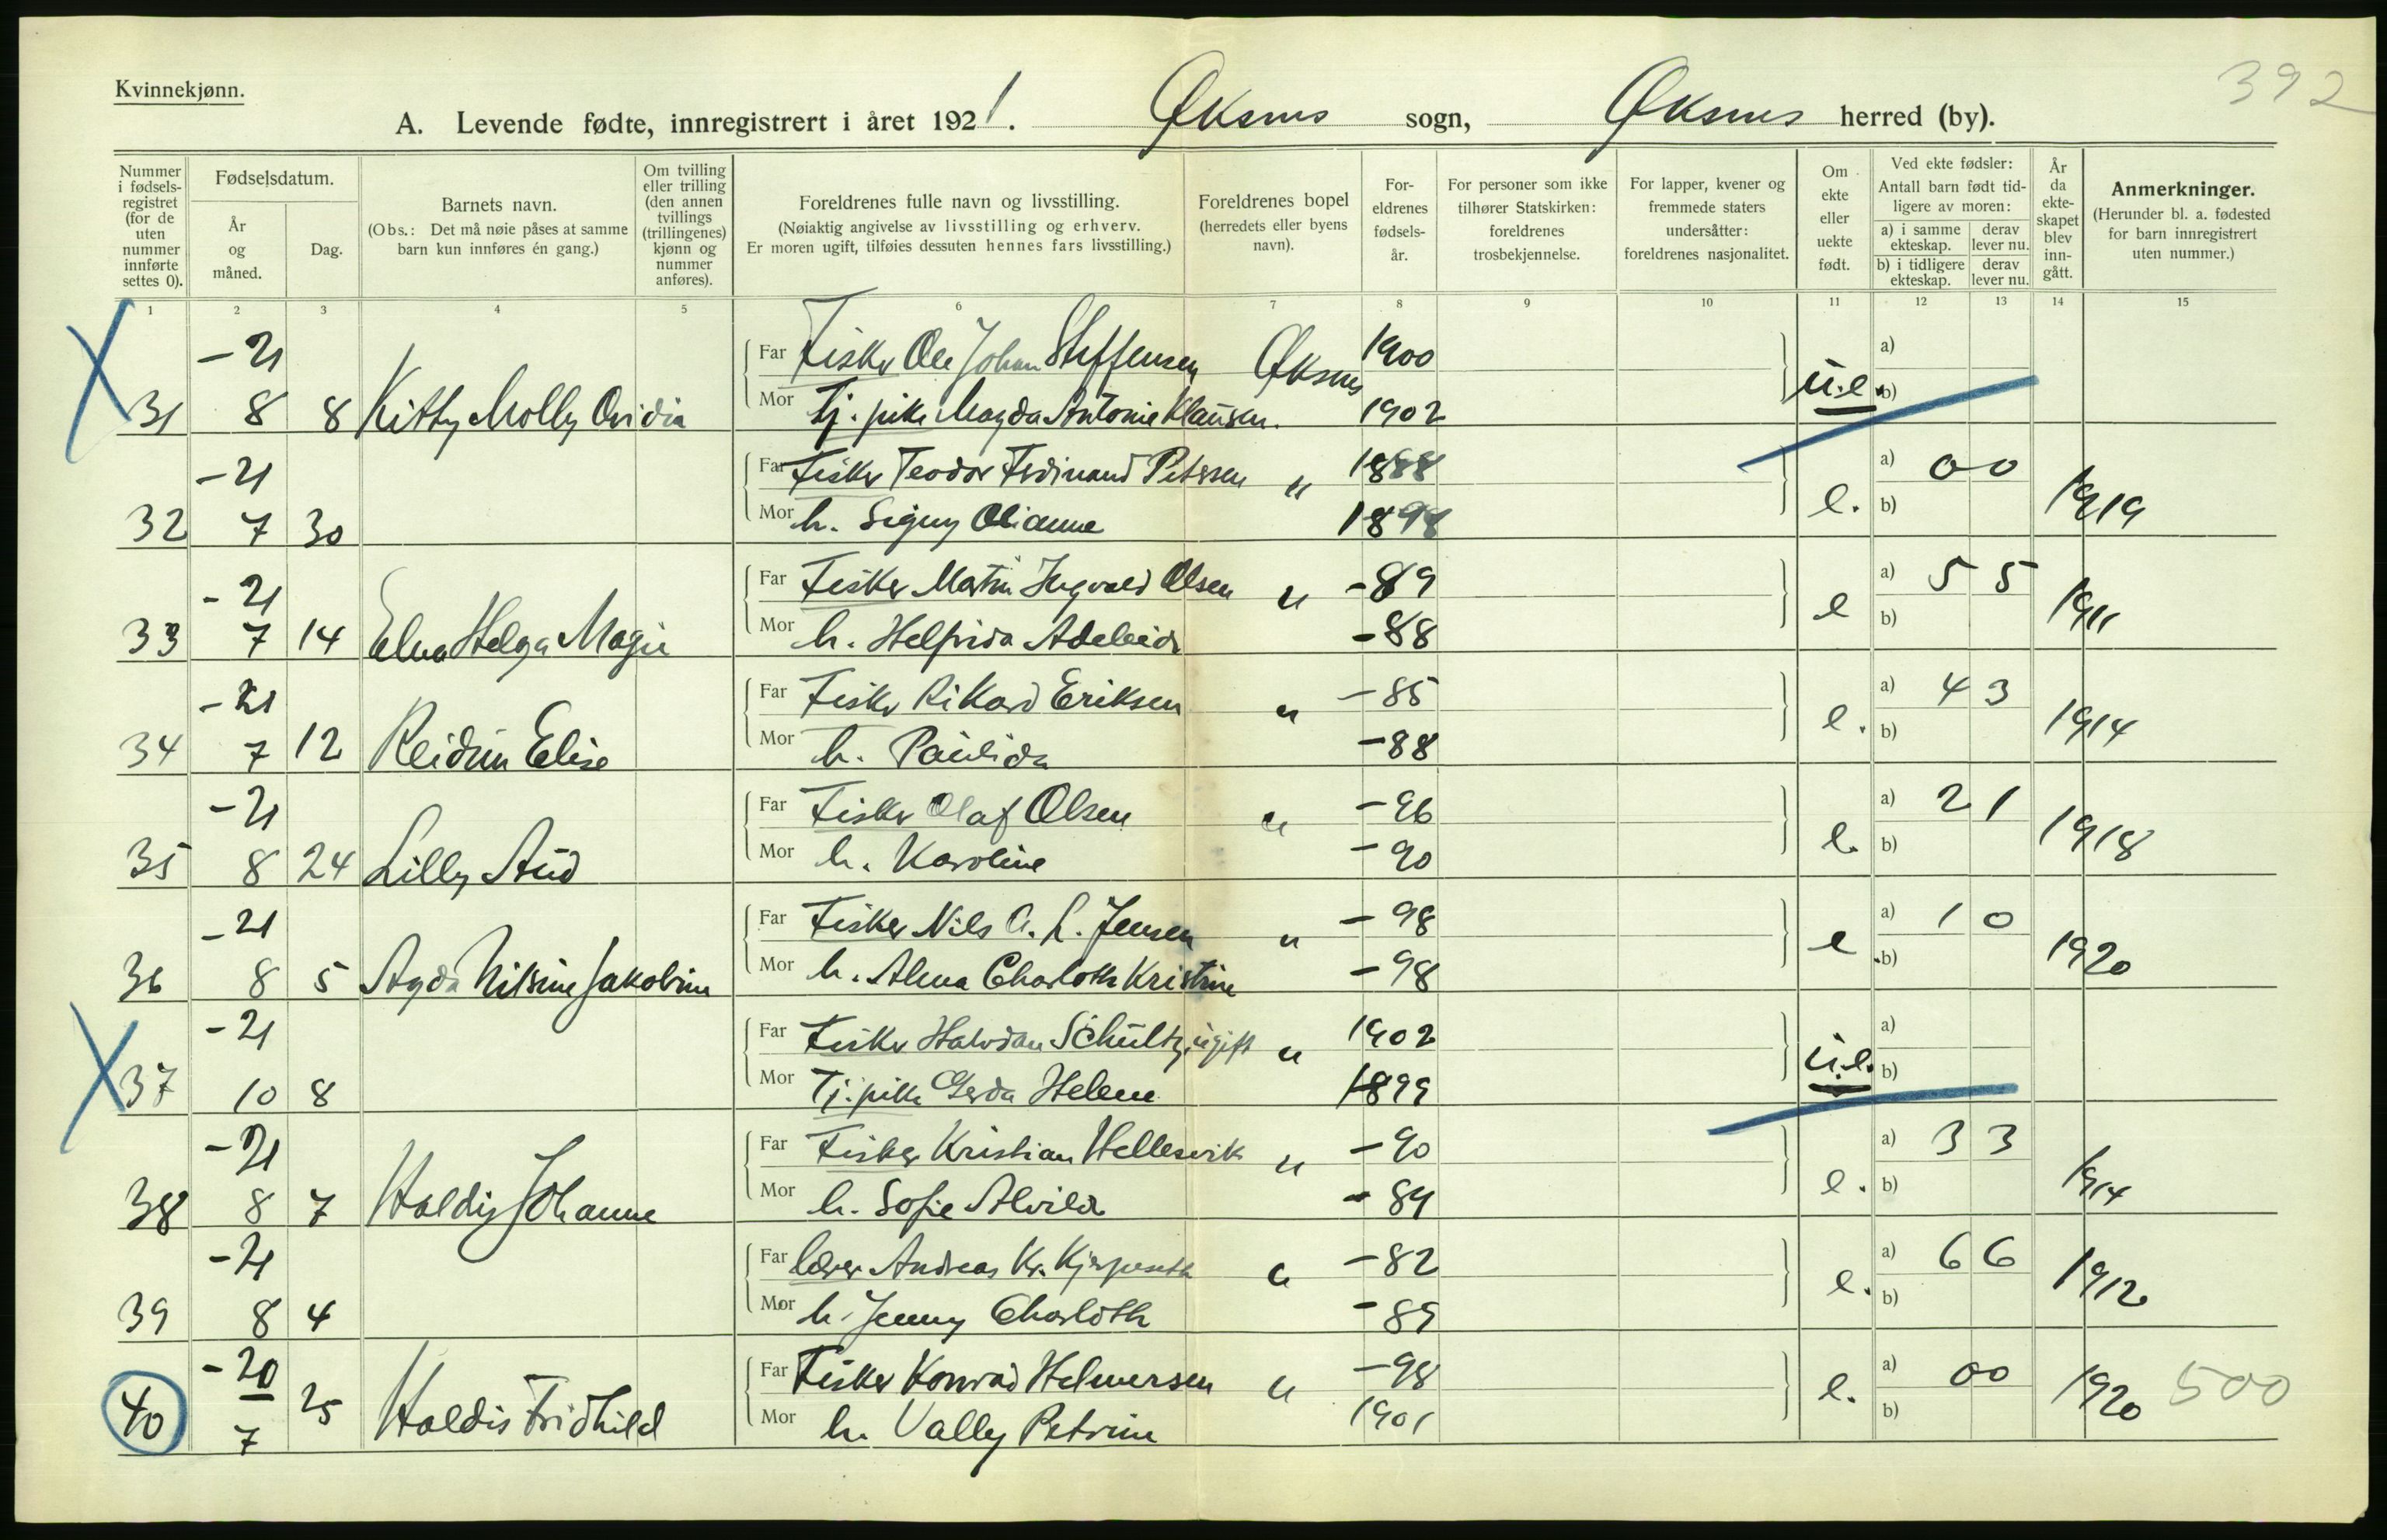 Kvinnekjønn.
392
A. Levende fødte, innregistrert i året 1921. Øksnes sogn, Øksnes herred (by).
Nummer i fødselsregistret (for de uten nummer innførte settes 0).
Fødselsdatum.
År og måned.
Dag.
Barnets navn.
(Obs.: Det må nøie påses at samme barn kun innføres én gang.)
Om tvilling eller trilling (den annen tvillings (trillingenes) kjønn og nummer anføres).
Foreldrenes fulle navn og livsstilling.
(Nøiaktig angivelse av livsstilling og erhverv. Er moren ugift, tilføies dessuten hennes fars livsstilling.)
Foreldrenes bopel (herredets eller byens navn).
Foreldrenes fødselsår.
For personer som ikke tilhører Statskirken: foreldrenes trosbekjennelse.
For lapper, kvener og fremmede staters undersåtter: foreldrenes nasjonalitet.
Om ekte eller uekte født.
Ved ekte fødsler: Antall barn født tidligere av moren:
a) i samme ekteskap. derav lever nu.
b) i tidligere ekteskap. derav lever nu.
År da ekteskapet blev inngått.
Anmerkninger.
(Herunder bl. a. fødested for barn innregistrert uten nummer.)
1 2 3 4 5 6 7 8 9 10 11 12 13 14 15
-21 Far Fisker Ole Johan Steffensen Øksnes 1900 a)
31 8 8 Kitty Molly Ovidia Mor Tj. pike Magda Antonie Klausen. 1902 u.e. b)
-21 Far Fisker Teodor Ferdinand Petersen " 1888 a) 0 0
32 7 30 Mor h. Signy Olianne 1898 e. b) 1919
-21 Far Fisker Martin Ingvald Olsen " -89 a) 5 5
33 7 14 Elna Helga Magie Mor h. Helfrida Adeleide -88 e b) 1911
-21 Far Fisker Rikard Eriksen " -85 a) 4 3
34 7 12 Reidun Elise Mor h. Paulida -88 e. b) 1914
-21 Far Fisker Olaf Olsen " -96 a) 2 1
35 8 24 Lilly Aud Mor h. Karoline -90 e. b) 1918
-21 Far Fisker Nils A. L. Jensen " -98 a) 1 0
36 8 5 Agda Nilsine Jakobine Mor h. Alma Charloth Kristine -98 e. b) 1920
-21 Far Fisker Halvdan Schultz, ugift " 1902 a)
37 10 8 Mor Tj. pike Gerda Helene 1899 u.e. b)
-21 Far Fisker Kristian Hellesvik " -90 a) 3 3
38 8 7 Haldis Johanne Mor h. Sofie Alvilde -89 e. b) 1914
-21 Far lærer Andreas Kr. " -82 a) 6 6
39 8 4 Mor h. Jenny Charloth -89 e. b) 1912
-20 Far Fisker Konrad Helmersen " -98 a) 0 0
40 7 25 Haldis Fridhild Mor h. Vally Petrine 1901 e. b) 1920 500